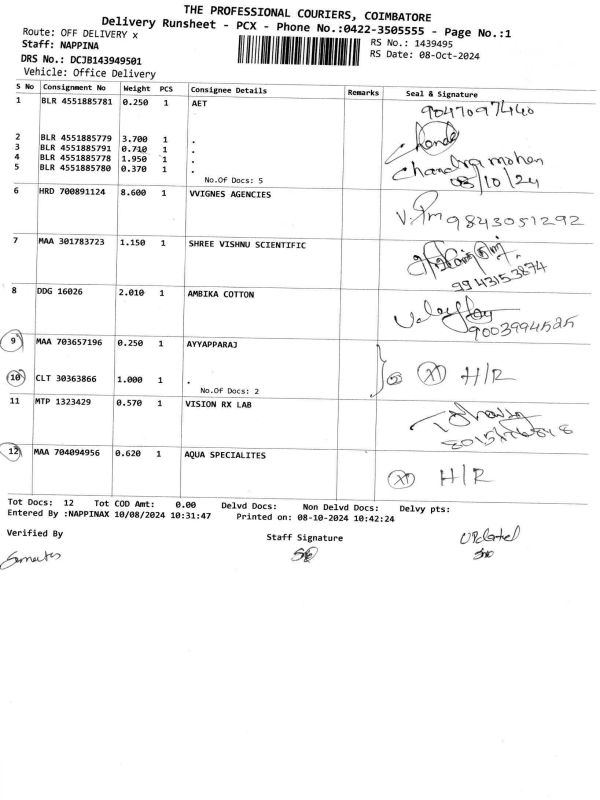 THE PROFESSIONAL COURIERS, COIMBATORE
Delivery Runsheet - PCX - Phone No.:0422-3505555 - Page No.:1
Route: OFF DELIVERY x
RS No.: 1439495
Staff: NAPPINA
RS Date: 08-Oct-2024
DRS No.: DCJB143949501
Vehicle: Office Delivery
S No Consignment No Weight PCS Consignee Details Remarks Seal & Signature
1 BLR 4551885781 0.250 1 AET
9047097440
2 BLR 4551885779 3.700 1 .
3 BLR 4551885791 0.710 1 .
4 BLR 4551885778 1.950 1 .
Chandramohan
5 BLR 4551885780 0.370 1 .
08/10/24
No.Of Docs: 5
6 HRD 700891124 8.600 1 VVIGNES AGENCIES
9843051292
7 MAA 301783723 1.150 1 SHREE VISHNU SCIENTIFIC
9943153874
8 DDG 16026 2.010 1 AMBIKA COTTON
9003994525
9 MAA 703657196 0.250 1 AYYAPPARAJ
10 CLT 30363866 1.000 1 .
H/R
No.Of Docs: 2
11 MTP 1323429 0.570 1 VISION RX LAB
12 MAA 704094956 0.620 1 AQUA SPECIALITES
H/R
Tot Docs: 12 Tot COD Amt: 0.00 Delvd Docs: Non Delvd Docs: Delvy pts:
Entered By :NAPPINAX 10/08/2024 10:31:47 Printed on: 08-10-2024 10:42:24
Verified By Staff Signature Updated